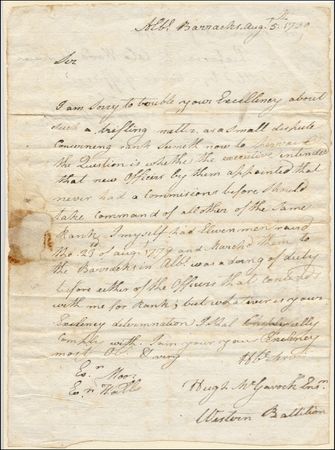 Albe. Barracks. Augt. 5th. 1780
Sir
I am Sorry to trouble your Excellency about
such a trifling matter as a Small dispute
Concerning rank Suneth now to
the Question is whether the executive intended
that new Officers by them appointed that
never had a commissions before Should
take command of all other of the Same
Rank, I myself had Eleven men raisd
the 23d of augt. 1779 and Marchd them to
the Barracks in Albe was a doing of duty
before either of the Officers that contends
with me for Rank; but what ever is your
Exelency determination I shal Chearfully
Comply with. I am your your Exelency
most Obt. Serving Hble
Esn. Moor
Esn. Wallls
Hugh McGavock Ensn.
Western Battelion